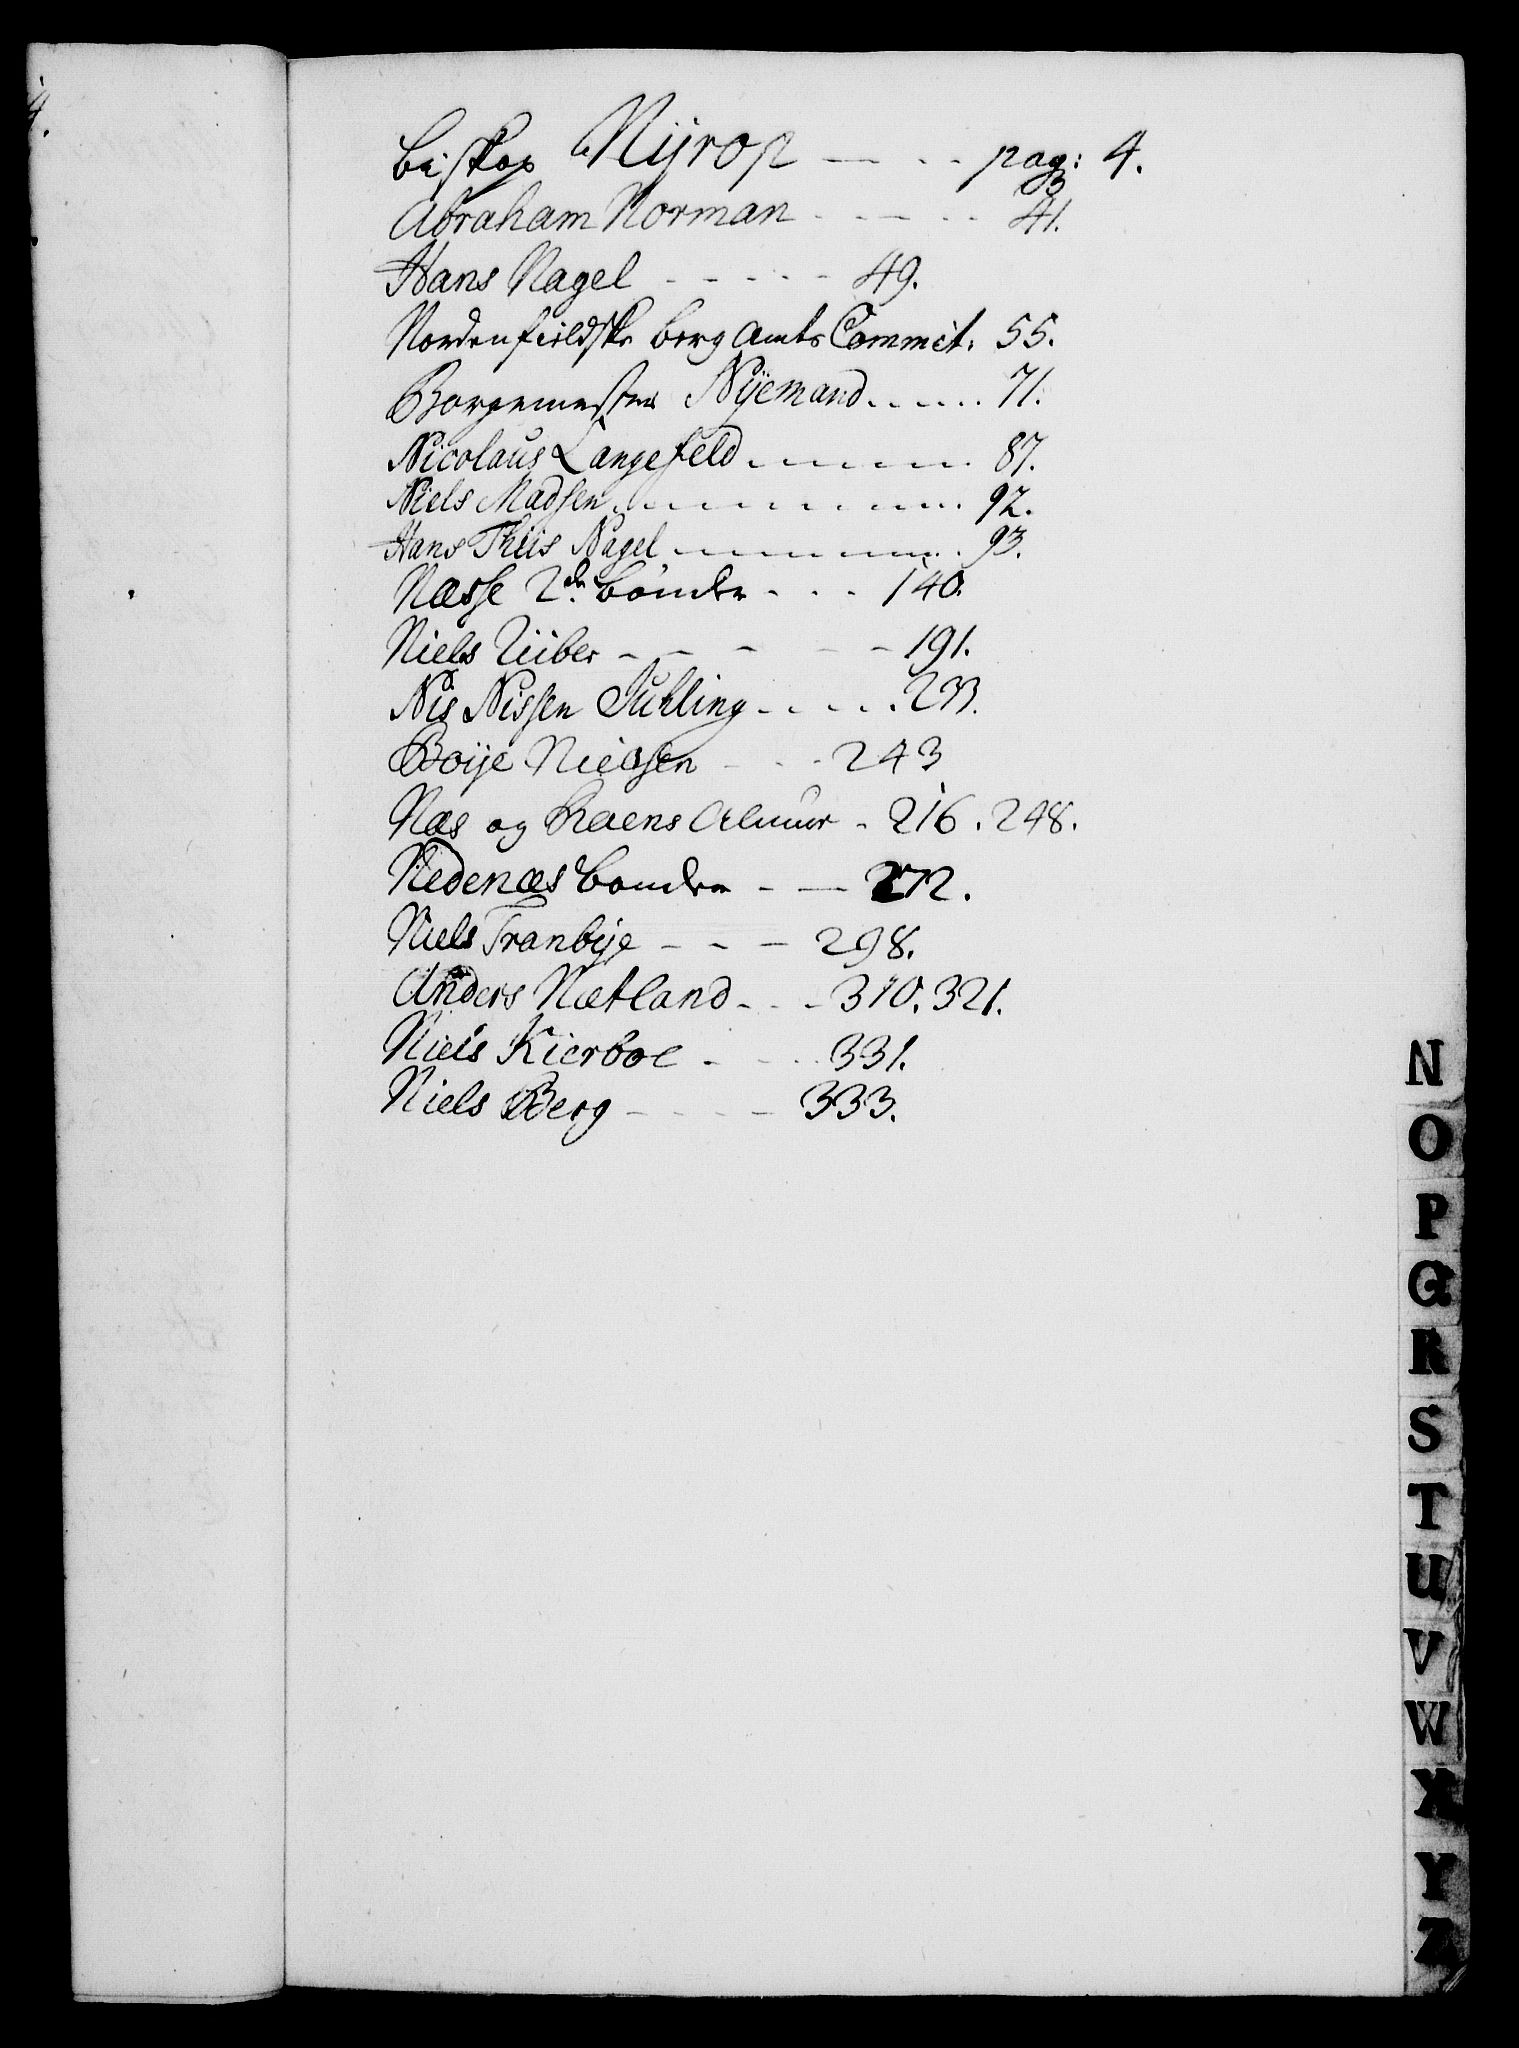 4.
Biskop Nÿrop — - - pag: 4.
Abraham Norman - - - - - 41.
Hans Nagel - - - - - 49.
Nordenfieldske berg Amts Commit: 55.
Borgemester Nÿemand . . . . . . 71.
Nicolaus Langefeld . - - - - . 87.
Niels Madsen . - - - - - - . 92.
Hans Thiis Nagel - - - - - . 93.
Næsse 2de bønder - - - 140.
Niels - - - - - 191.
Nis Nissen Juhling - - - - . 233.
Boÿe Nielsen - - - 243
Næs og Almuer - 216. 248.
Nedenæs bønder - — 272.
Niels Tranbÿe - - - 298.
Anders Nætland - - - 310. 321.
Niels Kierboe - - - - 331.
Niels Berg - - - - 333.
N
O
P
Q
R
S
T
U
V
W
X
Y
Z